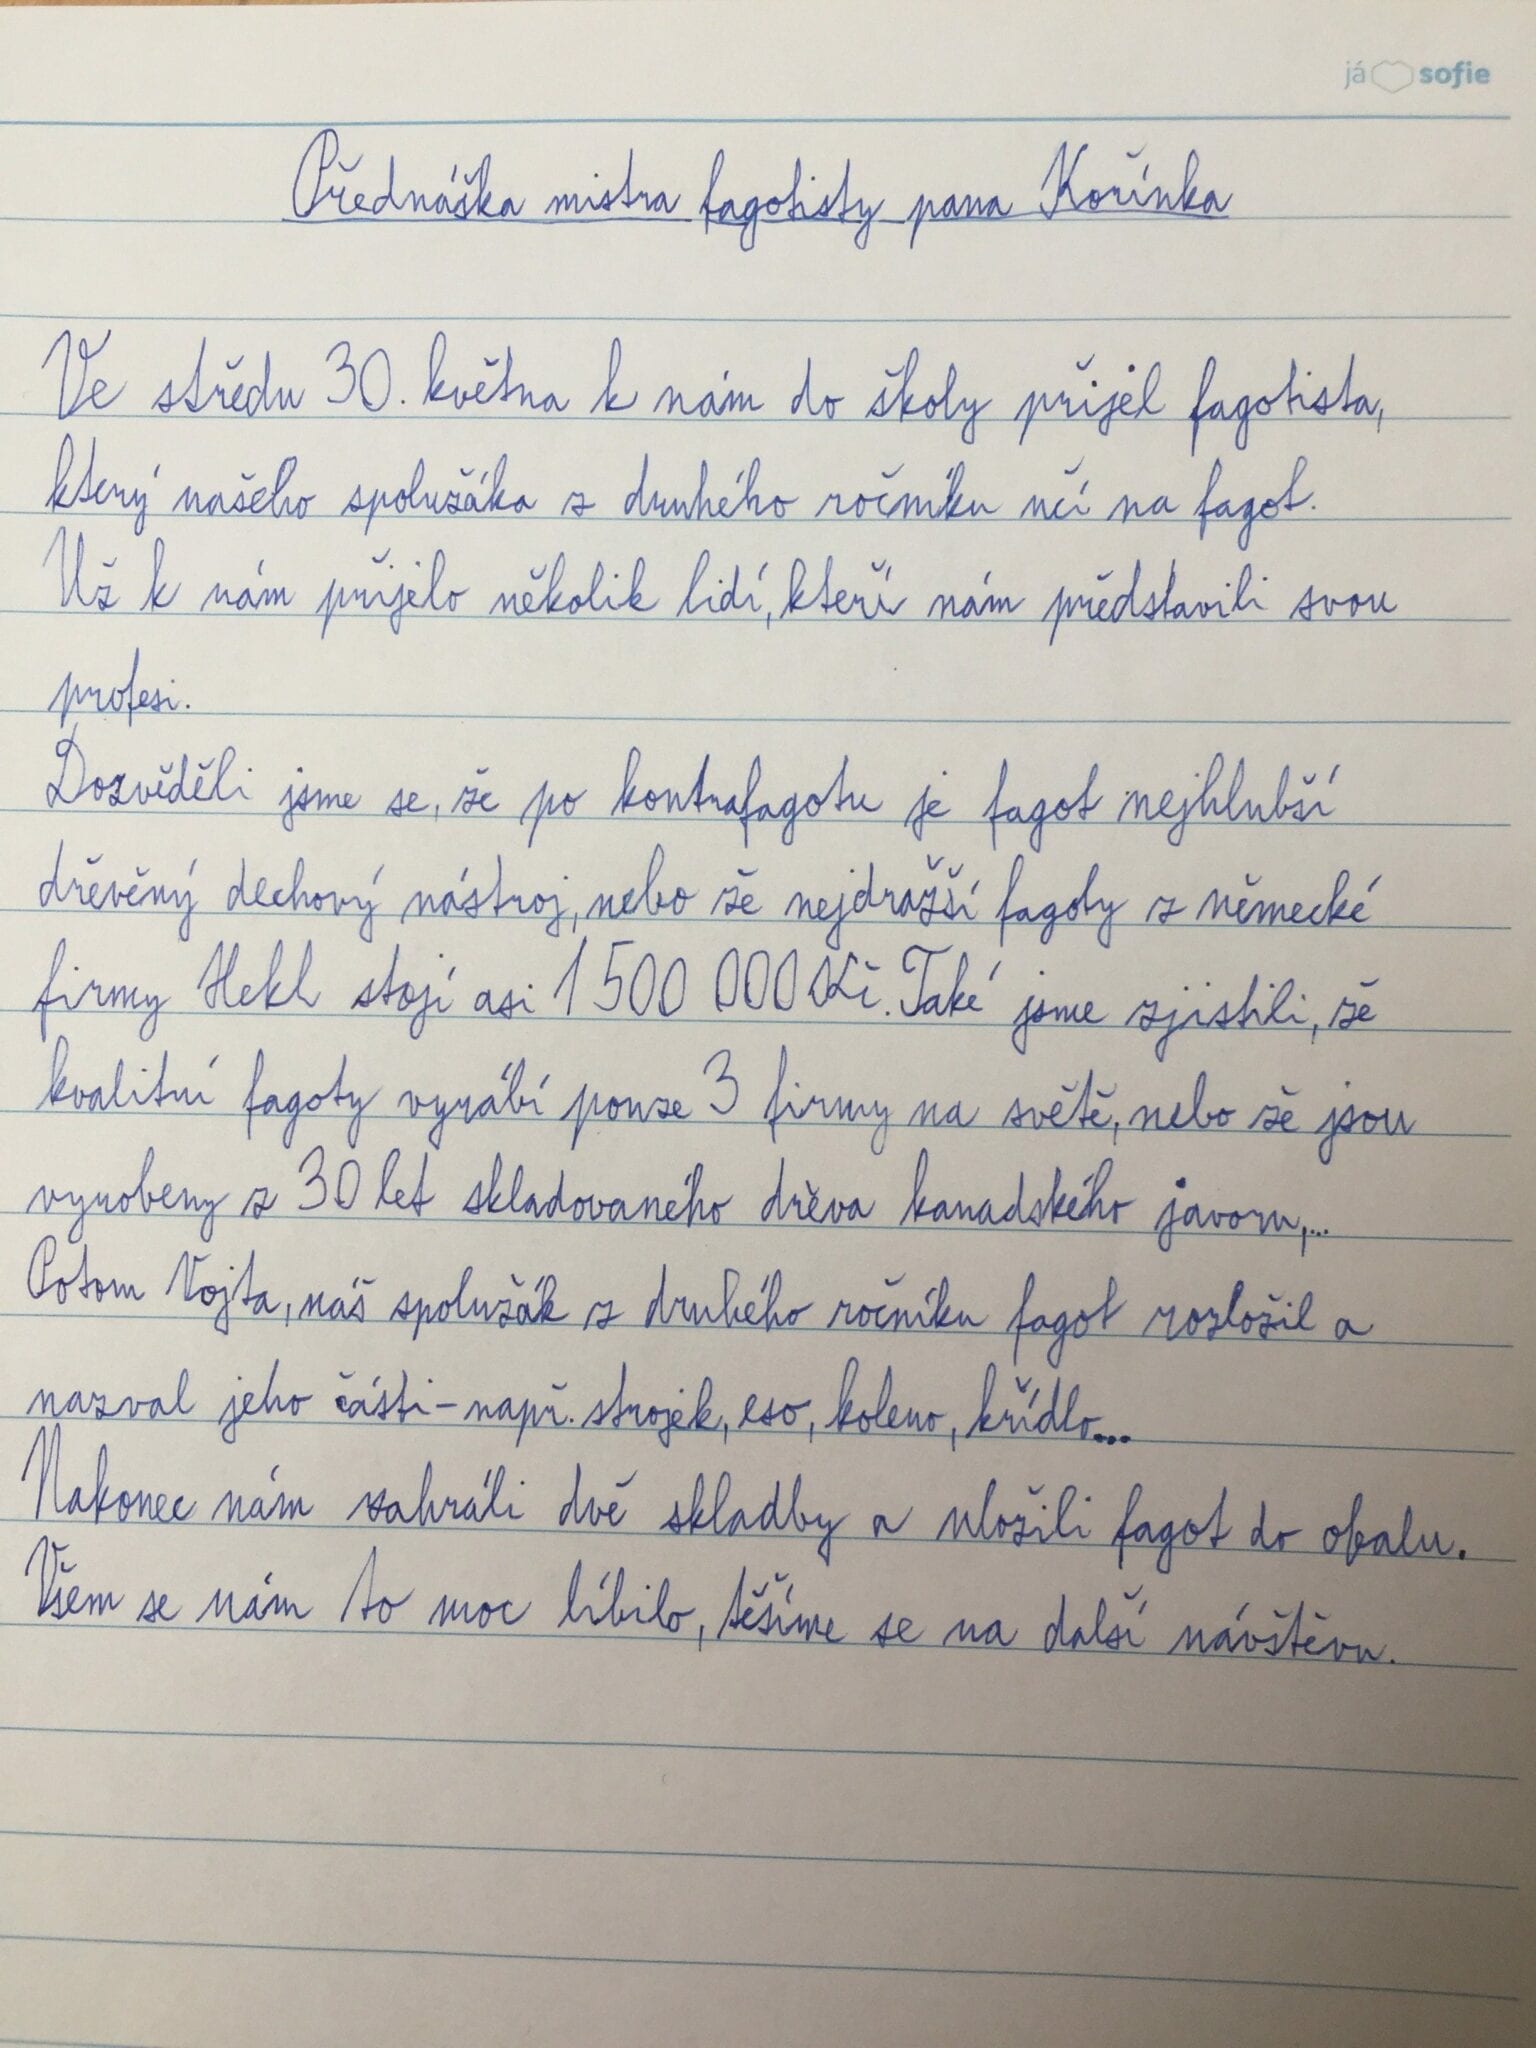 já sofie
Přednáška mistra fagotisty pana Kořínka
Ve středu 30. května k nám do školy přijel fagotista,
který našeho spolužáka z druhého ročníku učí na fagot.
Už k nám přijelo několik lidí, kteří nám představili svou
profesi.
Dozvěděli jsme se, že po kontrafagotu je fagot nejhlubší
dřevěný dechový nástroj, nebo že nejdražší fagoty z německé
firmy Hekl stojí asi 1 500 000 Kč. Také jsme zjistili, že
kvalitní fagoty vyrábí pouze 3 firmy na světě, nebo že jsou
vyrobeny z 30 let skladovaného dřeva kanadského javoru,...
Potom Vojta, náš spolužák z druhého ročníku fagot rozložil a
nazval jeho části - např. strojek, eso, koleno, křídlo...
Nakonec nám zahráli dvě skladby a uložili fagot do obalu.
Všem se nám to moc líbilo, těšíme se na další návštěvu.